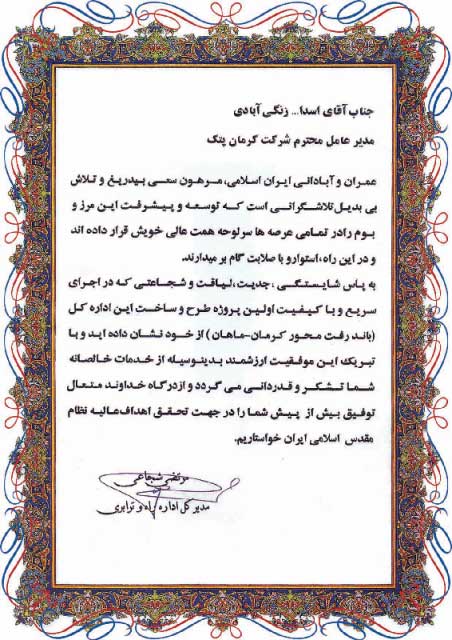 جناب آقای اسدا... زنگی آبادی
مدیر عامل محترم شرکت کرمان پتک
عمران و آبادانی ایران اسلامی، مرهون سعی بیدریغ و تلاش
بی بدیل تلاشگرانی است که توسعه و پیشرفت این مرز و
بوم رادر تمامی عرصه ها سرلوحه همت عالی خویش قرار داده اند
و در این راه، استوارو با صلابت گام بر میدارند.
به پاس شایستگی ، جدیت، لیاقت و شجاعتی که در اجرای
سریع و با کیفیت اولین پروژه طرح و ساخت این اداره کل
(باند رفت محور کرمان-ماهان) از خود نشان داده اید و با
تبریک این موفقیت ارزشمند بدینوسیله از خدمات خالصانه
شما تشکر و قدردانی می گردد و ازدرگاه خداوند متعال
توفیق بیش از پیش شما را در جهت تحقق اهداف عالیه نظام
مقدس اسلامی ایران خواستاریم.
مرتضی شجاعی
مدیر کل اداره راه و ترابری